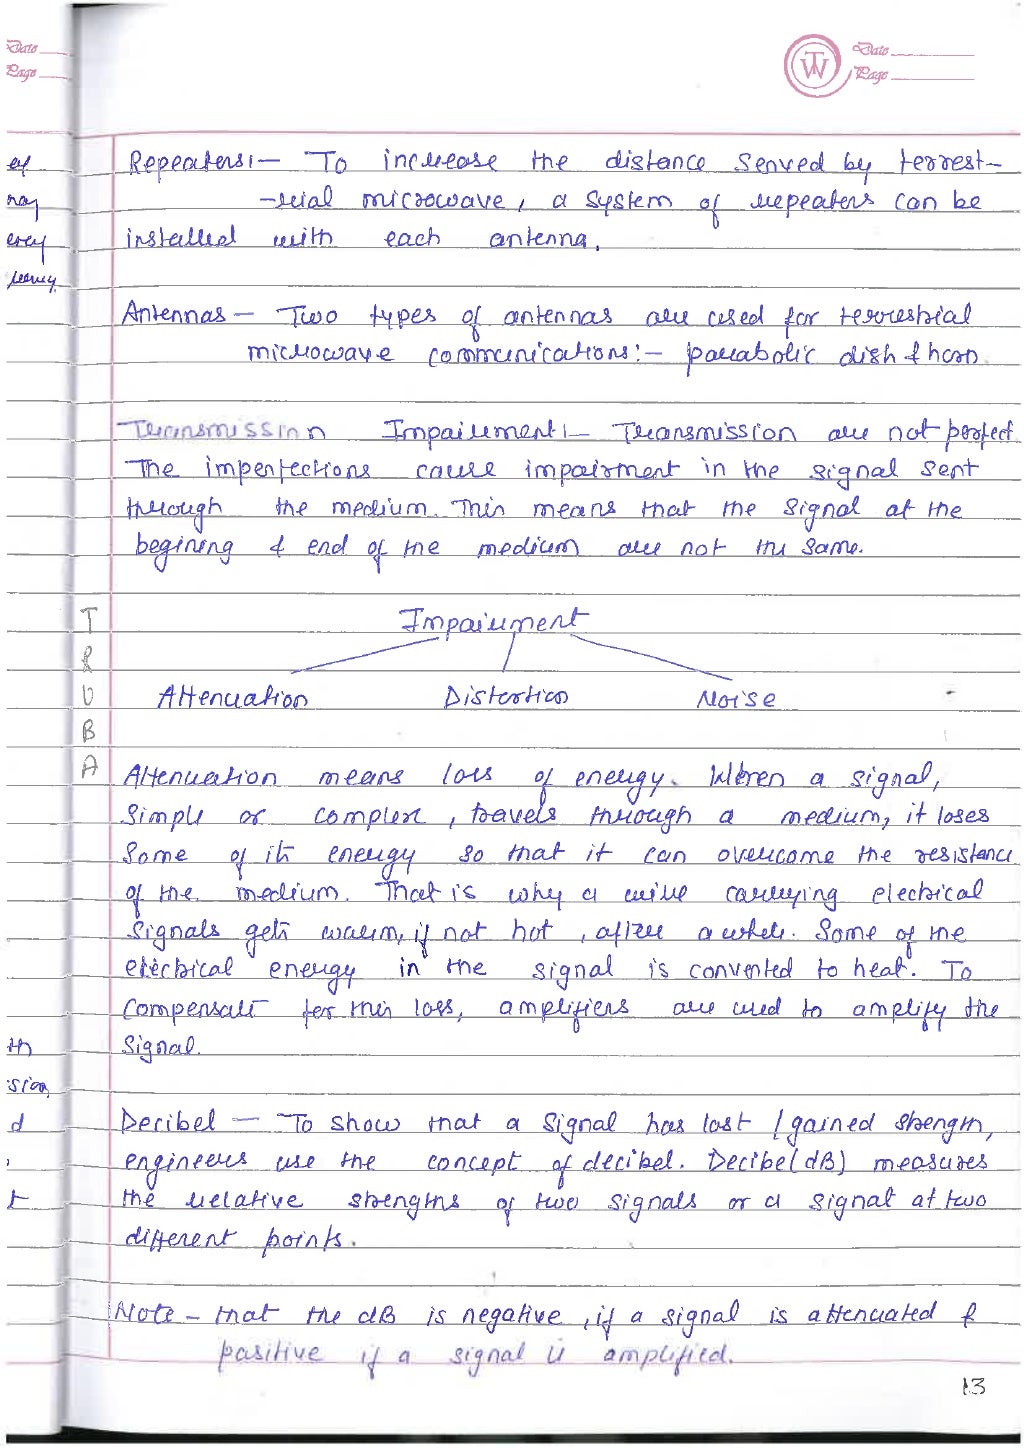 Date
Page
TW
Date
Page
Repeaters:- To increase the distance served by terrest-
-rial microwave, a system of repeaters can be
installed with each antenna.
Antennas - Two types of antennas are used for terrestrial
microwave communications:- parabolic dish & horn.
Transmission Impairment:- Transmission are not perfect.
The imperfections cause impairment in the signal sent
through the medium. This means that the signal at the
begining & end of the medium are not the same.
Impairment
Attenuation Distortion Noise
T
R
U
B
A
Attenuation means loss of energy. When a signal,
Simple or complex, travels through a medium, it loses
Some of its energy so that it can overcome the resistance
of the medium. That is why a wire carrying electrical
signals gets warm, if not hot, after a while. Some of the
electrical energy in the signal is converted to heat. To
Compensate for this loss, amplifiers are used to amplify the
Signal.
Decibel - To show that a signal has lost / gained strength,
engineers use the concept of decibel. Decibel (dB) measures
the relative strengths of two signals or a signal at two
different points.
Note - that the dB is negative, if a signal is attenuated &
positive if a signal is amplified.
13